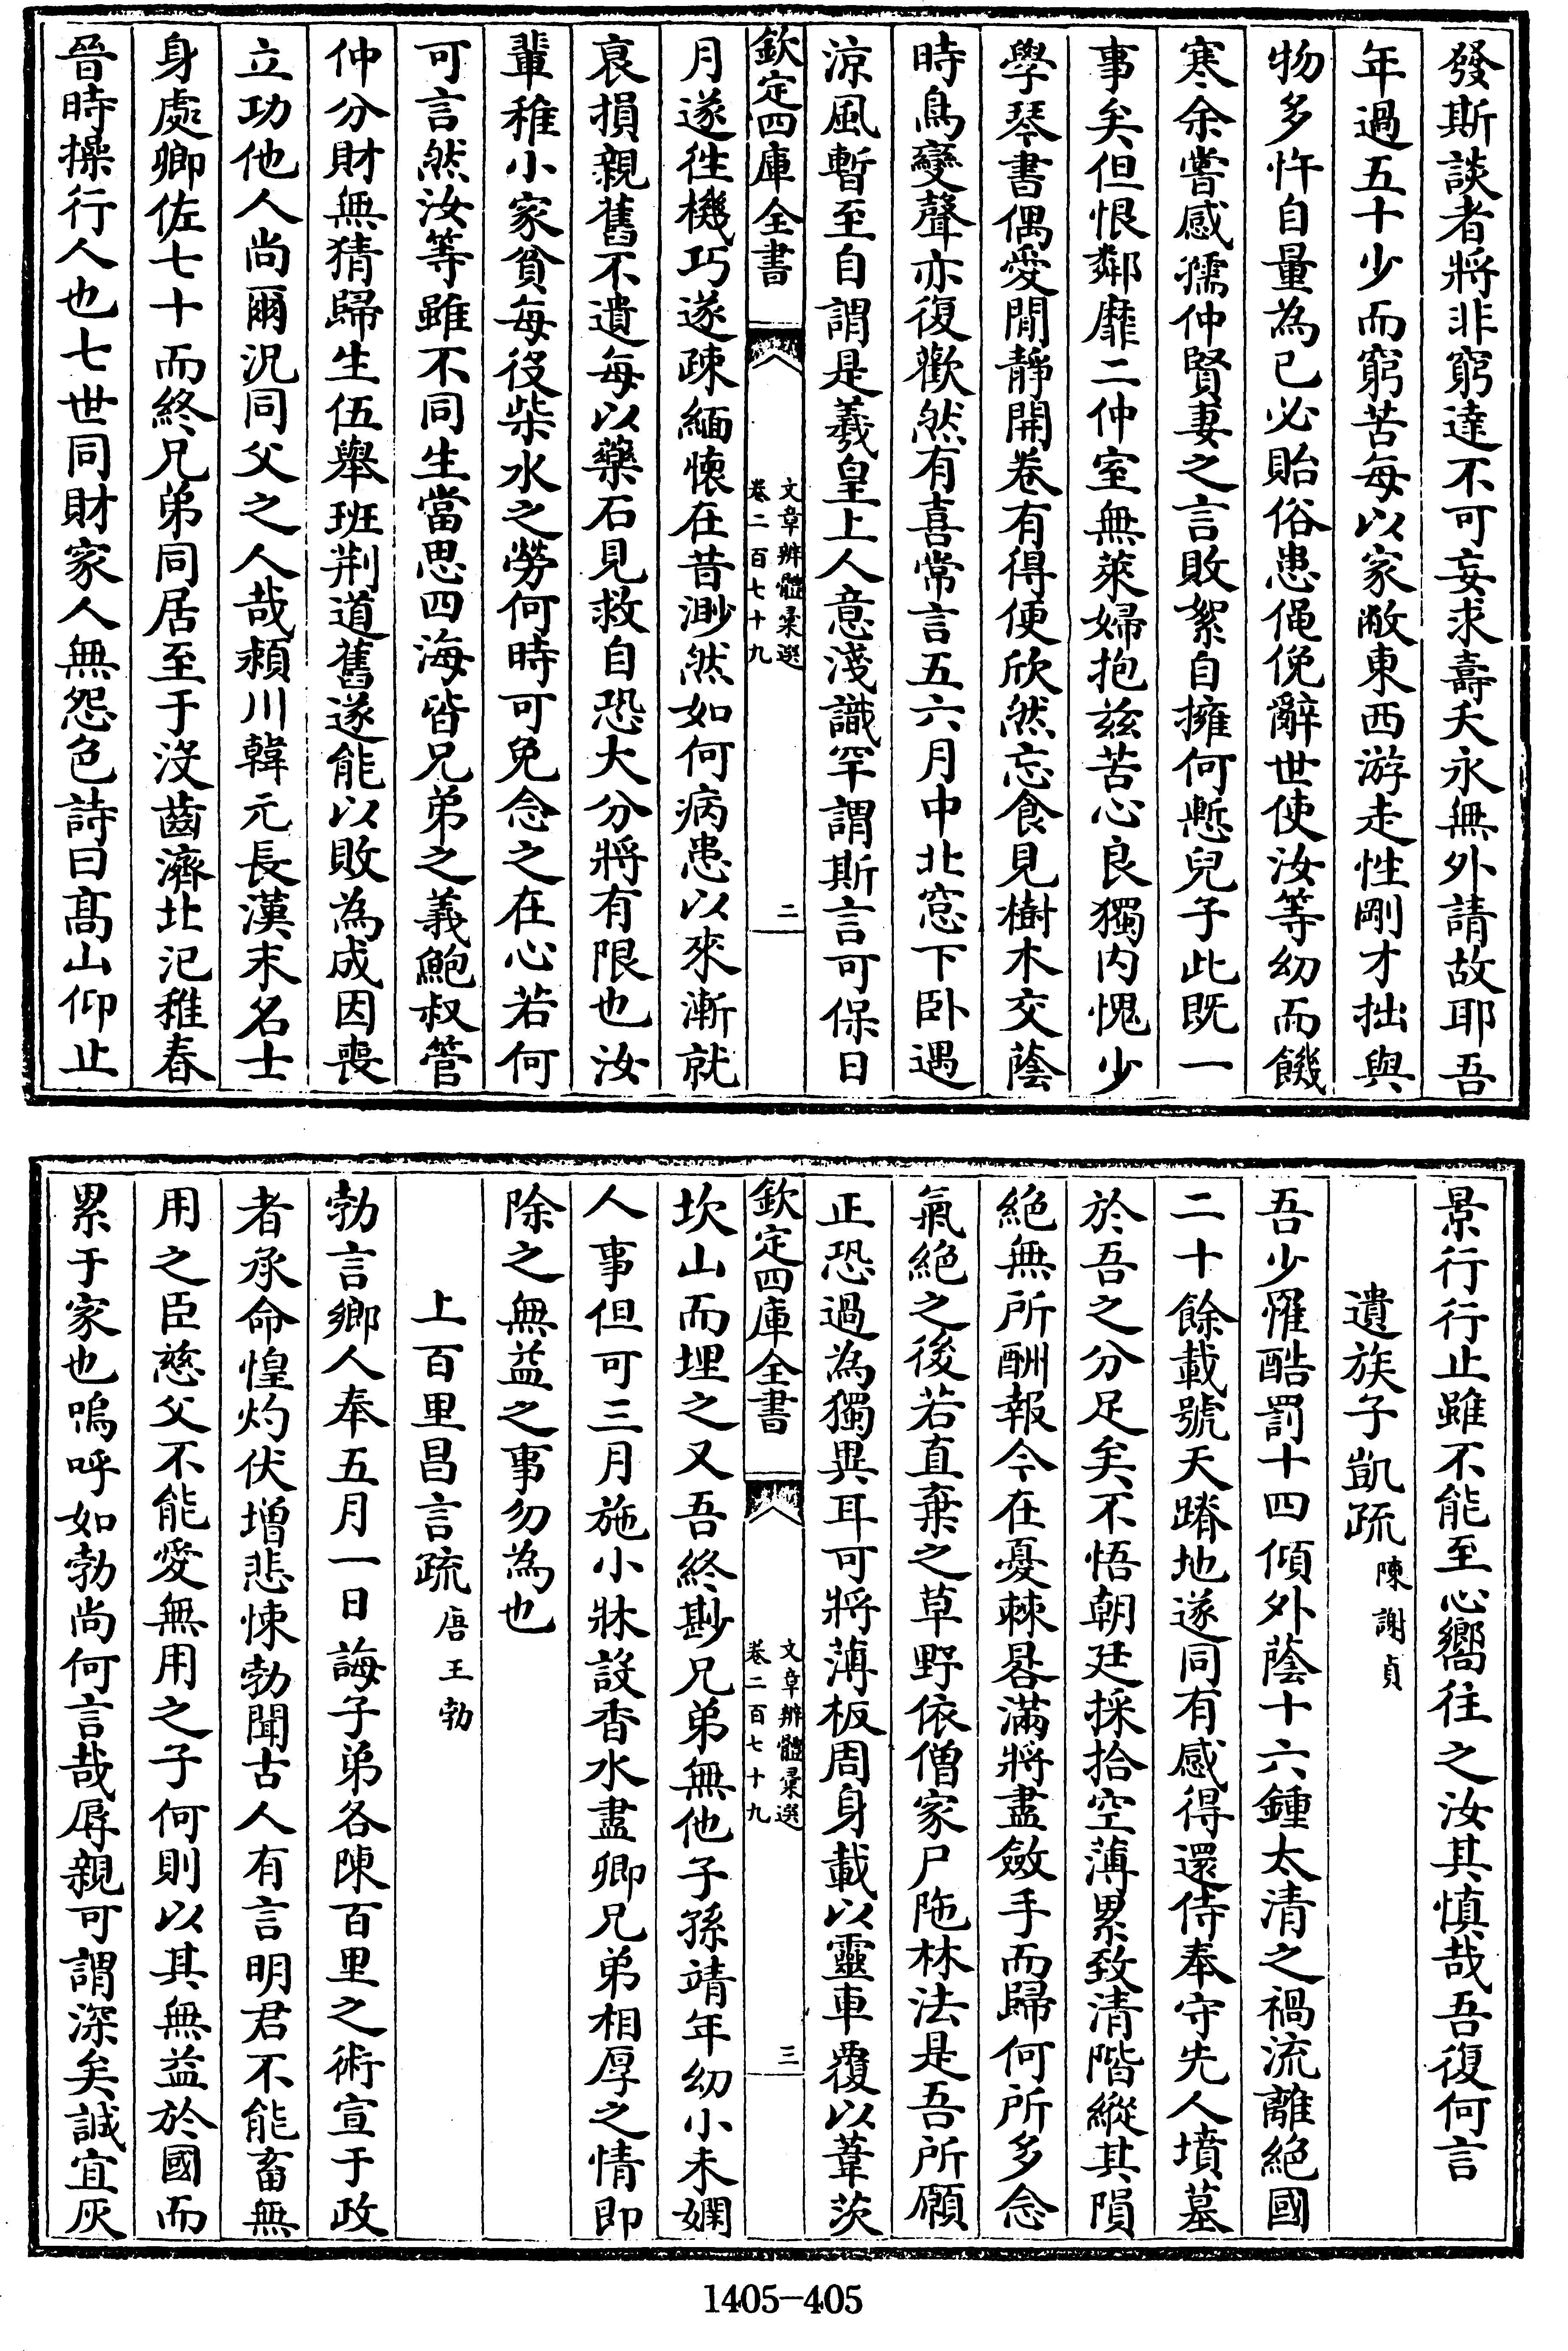 發斯談者將非窮達不可妄求壽夭永無外請故耶吾
年過五十少而窮苦每以家敝東西游走性剛才拙與
物多忤自量為已必貽俗患僶俛辭世使汝等幼而饑
寒余嘗感孺仲賢妻之言敗絮自擁何慙兒子此既一
事矣但恨鄰靡二仲室無萊婦抱兹苦心良獨内愧少
學琴書偶愛閒靜開卷有得便欣然忘食見樹木交蔭
時鳥變聲亦復歡然有喜常言五六月中北窓下卧遇
涼風暫至自謂是羲皇上人意淺識罕謂斯言可保日
欽定四庫全書
文章辨體彚選
卷二百七十九
二
月遂徃機巧遂疎緬懷在昔渺然如何病患以來漸就
衰損親舊不遺每以藥石見救自恐大分將有限也汝
輩稚小家貧每役柴水之勞何時可免念之在心若何
可言然汝等雖不同生當思四海皆兄弟之義鮑叔管
仲分財無猜歸生伍舉班荆道舊遂能以敗為成因喪
立功他人尚爾況同父之人哉潁川韓元長漢末名士
身處卿佐七十而終兄弟同居至于沒齒濟北氾稚春
晉時操行人也七世同財家人無怨色詩曰髙山仰止
景行行止雖不能至心嚮往之汝其慎哉吾復何言
遺族子凱疏 陳謝貞
吾少罹酷罰十四傾外蔭十六鍾太清之禍流離絕國
二十餘載號天蹐地遂同有感得還侍奉守先人墳墓
於吾之分足矣不悟朝廷採拾空薄累致清階縱其隕
絕無所酬報今在憂棘晷漏將盡斂手而歸何所多念
氣絕之後若直棄之草野依僧家尸陁林法是吾所願
正恐過為獨異耳可將薄板周身載以靈車覆以葦茨
欽定四庫全書
文章辨體彚選
卷二百七十九
三
坎山而埋之又吾終尠兄弟無他子孫靖年幼小未嫻
人事但可三月施小牀設香水盡卿兄弟相厚之情即
除之無益之事勿為也
上百里昌言疏 唐王勃
勃言鄉人奉五月一日誨子弟各陳百里之術宣于政
者承命惶灼伏增悲悚勃聞古人有言明君不能畜無
用之臣慈父不能愛無用之子何則以其無益於國而
累于家也嗚呼如勃尚何言哉辱親可謂深矣誠宜灰
1405-405